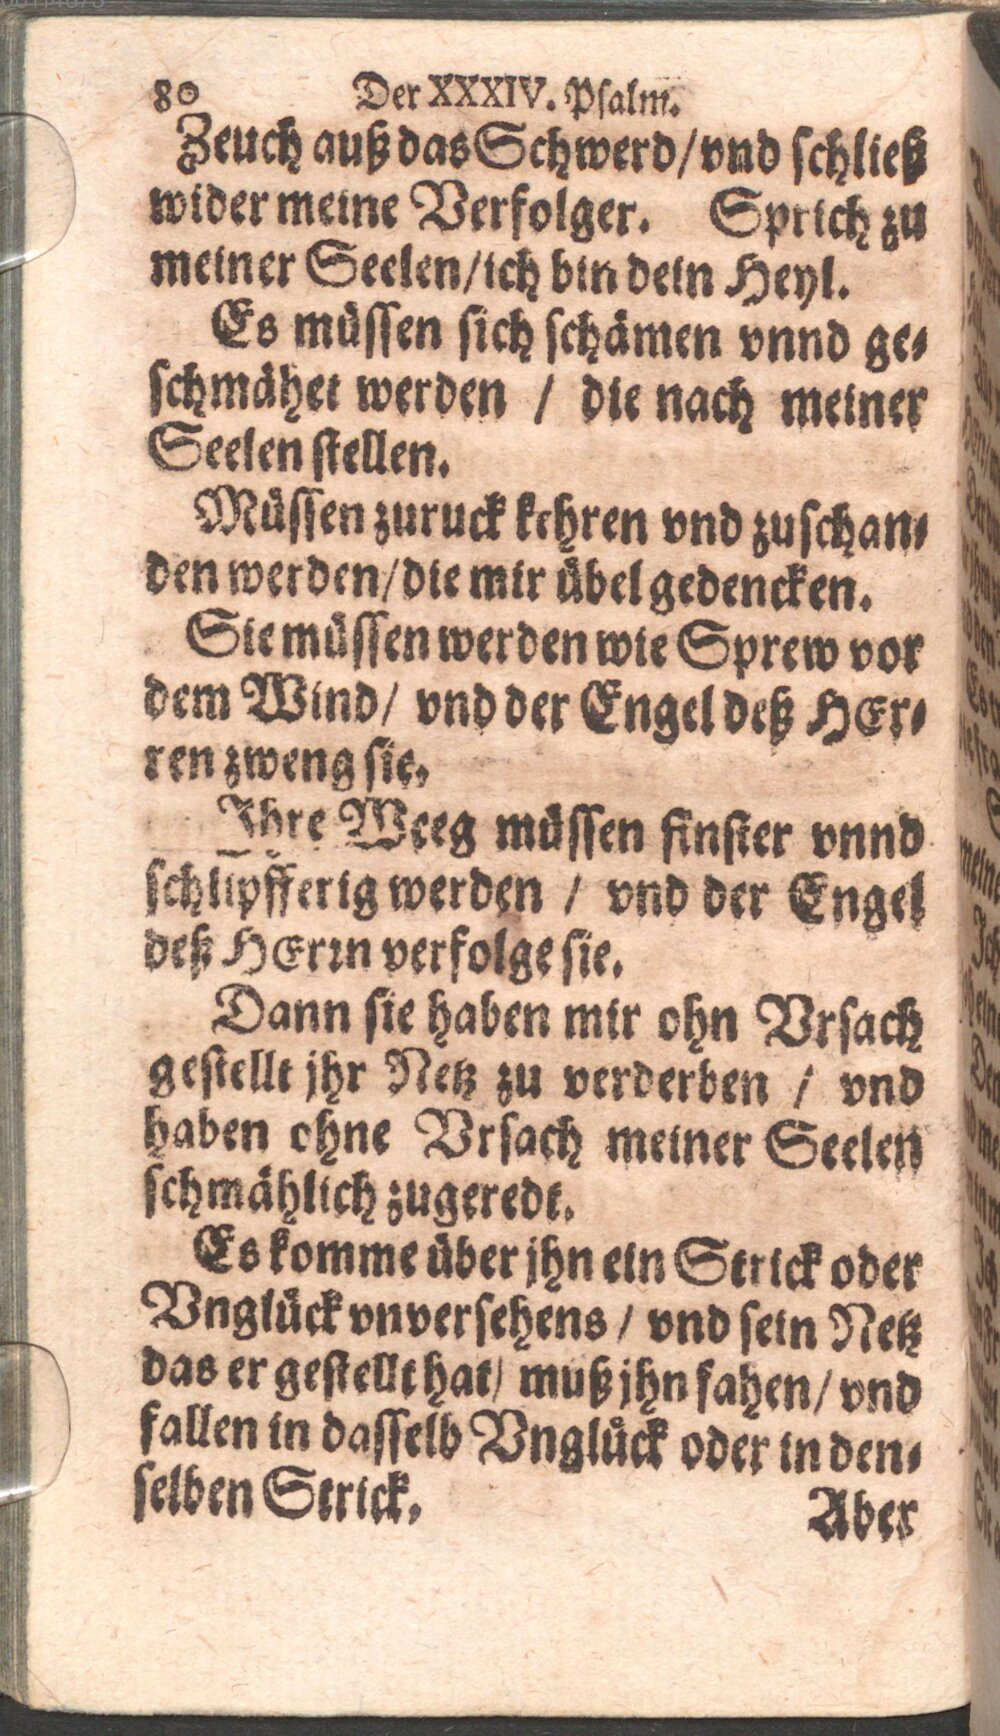 80 Der XXXIV. Psalm.
Zeuch auß das Schwerd/vnd schließ
wider meine Verfolger. Sprich zu
meiner Seelen/ich bin dein Heyl.
Es müssen sich schämen vnnd ge-
schmähet werden / die nach meiner
Seelen stellen.
Müssen zuruck kehren vnd zuschan-
den werden/die mir übel gedencken.
Sie müssen werden wie Sprew vor
dem Wind/ vnd der Engel deß HEr-
ren zweng sie.
Ihre Weeg müssen finster vnnd
schlipfferig werden / vnd der Engel
deß HErrn verfolge sie.
Dann sie haben mir ohn Vrsach
gestellt jhr Netz zu verderben / vnd
haben ohne Vrsach meiner Seelen
schmählich zugeredt.
Es komme über jhn ein Strick oder
Vnglück vnversehens / vnd sein Netz
das er gestellt hat/ muß jhn fahen/ vnd
fallen in dasselb Vnglück oder in den-
selben Strick.
Aber